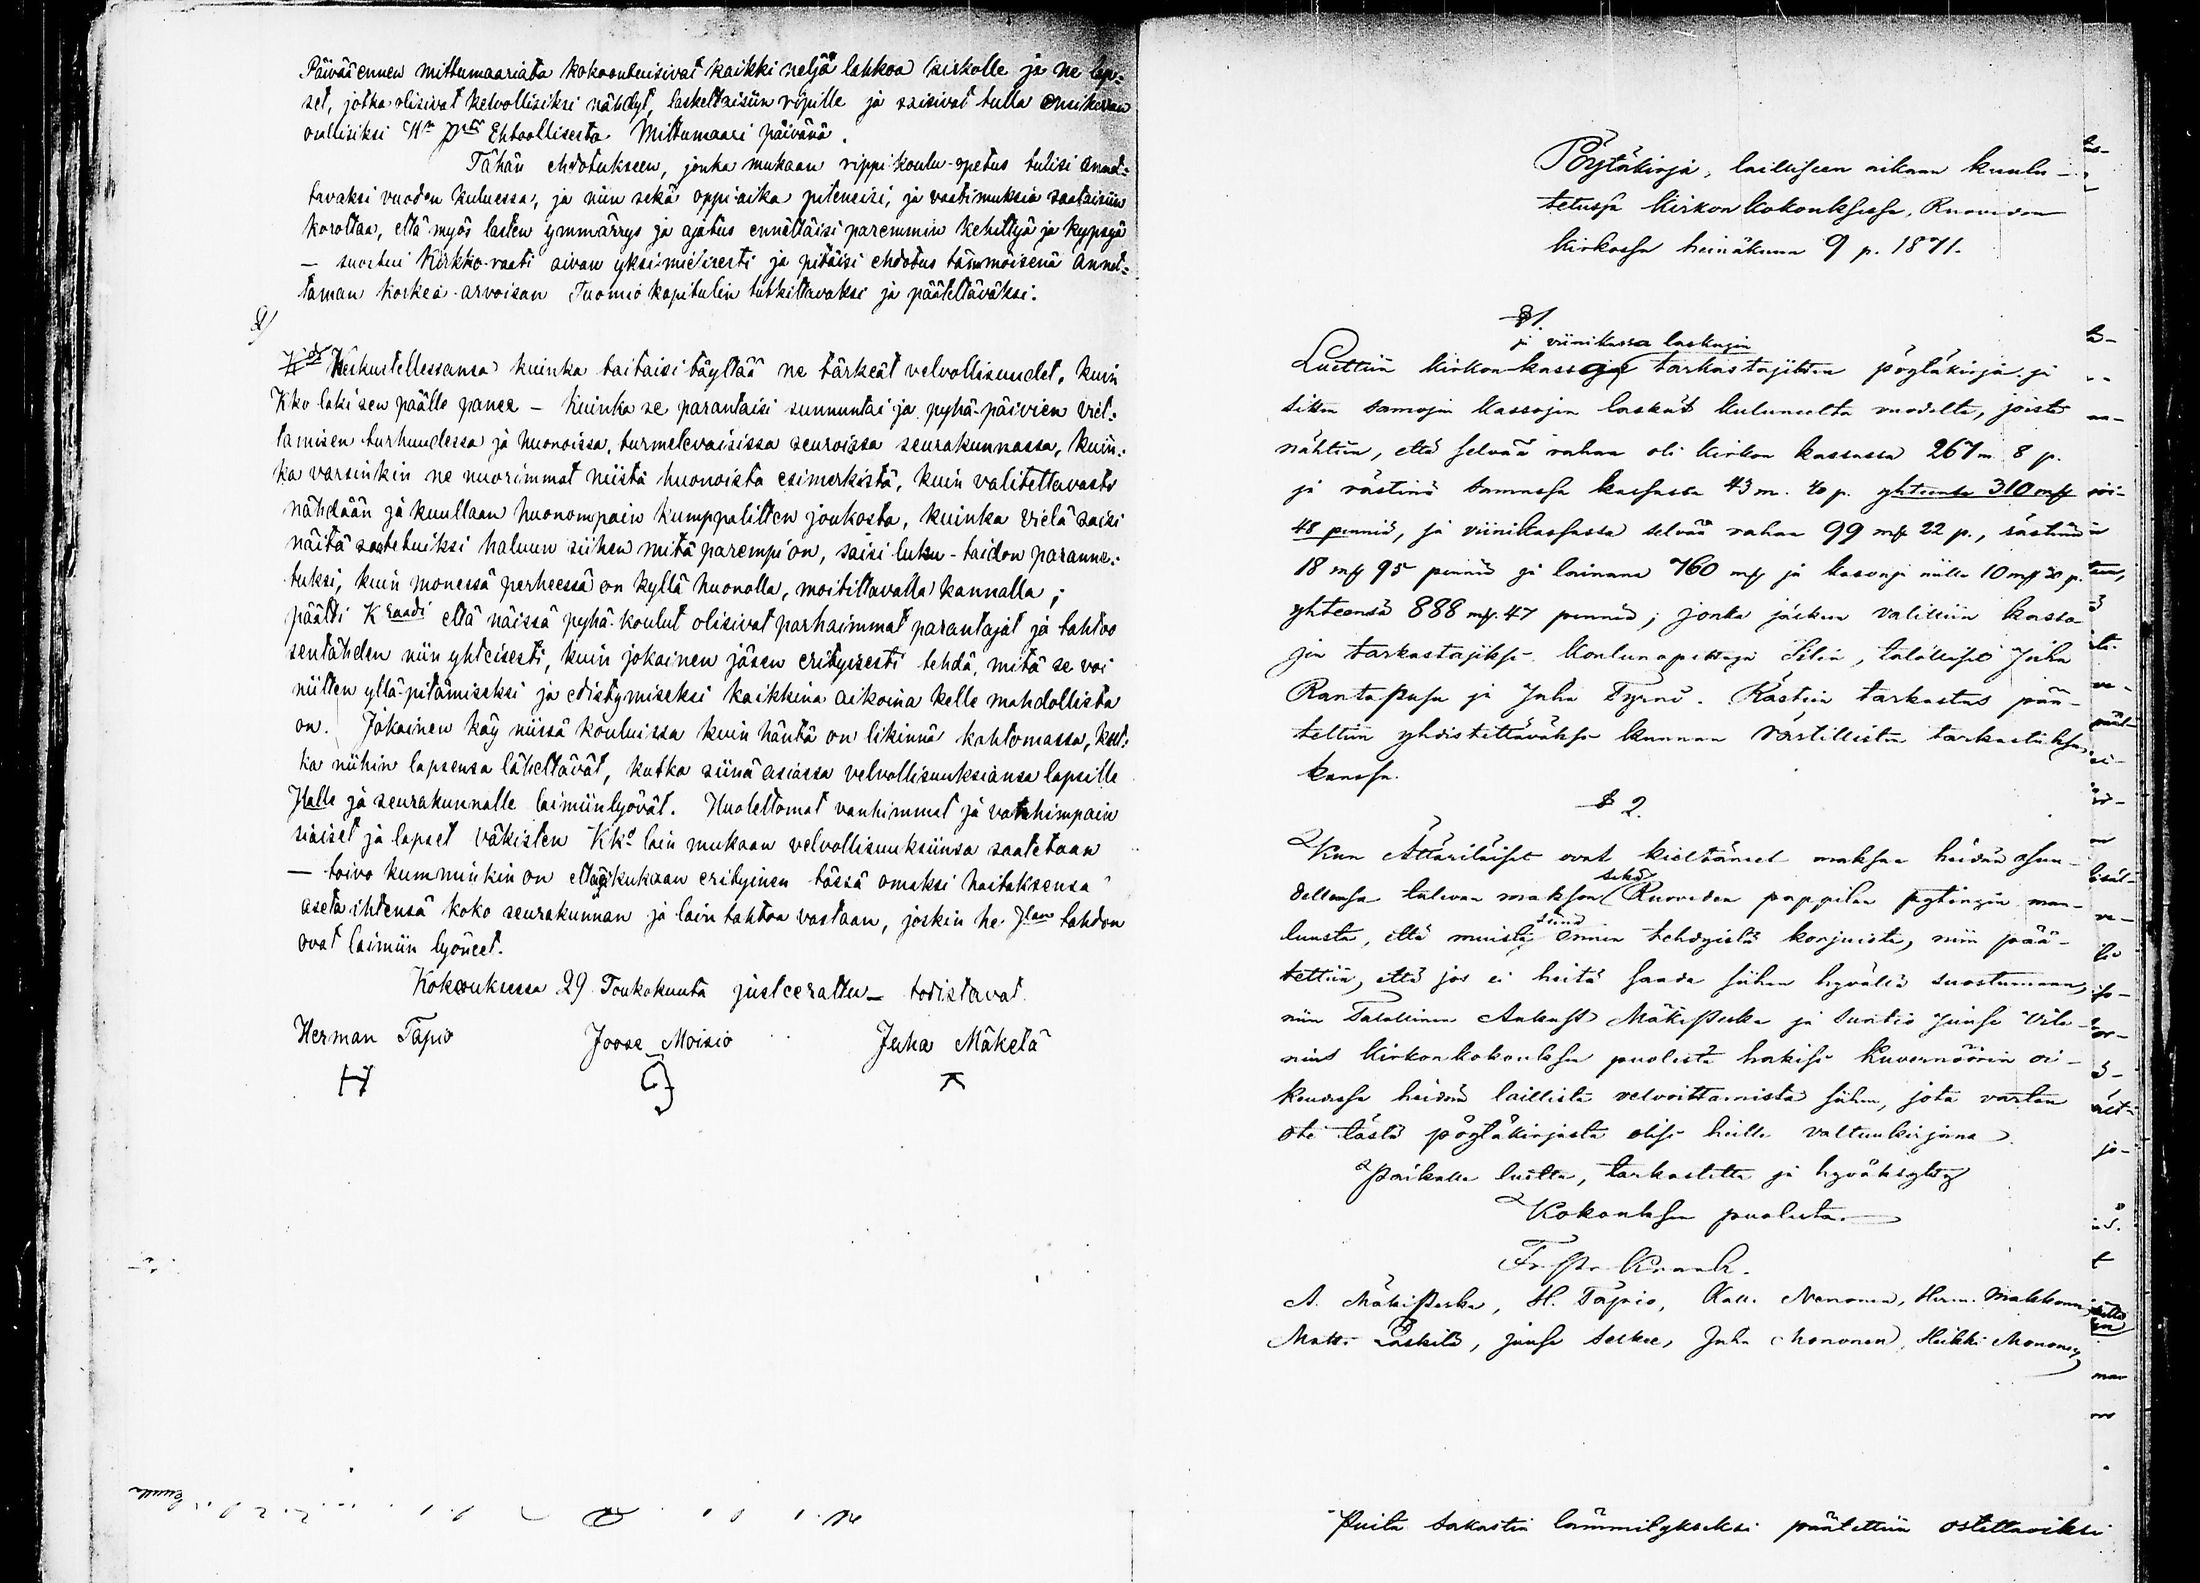 Päivää ennen mittumaariata kokoontuisivat kaikki neljä lahkoa kirkolle ja ne lap=
set, jotka olisivat kelvollisiksi nähdyt, laskettaisiin ripille ja saisivat tulla ensikerran
osallisiksi Hn Ehtoollisesta Mittumaari päivänä.
Tähän ehdotukseen, jonka mukaan rippi koulu-opetus tulisi annet=
tavaksi vuoden kuluessa, ja niin sekä oppi-aika pitenisi, ja vaatimuksia saataisiin
korottaa, että myös lasten ymmärrys ja ajatus ennättäisi paremmin kehittyä ja kypsyä
— suostui Kirkko-raati aivan yksimielisesti ja pitäisi ehdotus tämmöisenä annet=
taman korkea-arvoisan Tuomio kapitulin tutkittavaksi ja päätettäväksi.
Keskustellessansa kuinka taitaisi täyttää ne tärkeät velvollisuudet, kuin
Kko laki sen päälle panee — kuinka se parantaisi sunnuntai ja pyhä-päivien viet=
tämisen turhuudessa ja huonoissa, turmelevaisissa seuroissa seurakunnassa, kuin=
ka varsinkin ne nuorimmat niistä huonoista esimerkistä, kuin valitettavasti
nähdään ja kuullaan huonompain kumppalitten joukosta, kuinka vielä saisi
näitä saatetuiksi haluun siihen mitä parempi on, saisi luku-taidon paranne=
tuksi, kuin monessa perheessä on kyllä huonolla, moitittavalla kannalla;
päätti Kraadi että näissä pyhä-koulut olisivat parhaimmat parantajat ja tahtoo
sentähden niin yhteisesti, kuin jokainen jäsen erityisesti tehdä, mitä se voi
niitten yllä-pitämiseksi ja edistymiseksi kaikkina aikoina kelle mahdollista
on. Jokainen käy niissä kouluissa kuin häntä on likinnä kahtomassa, kut=
ka niihin lapsensa lähettävät, kutka siinä asiassa velvollisuuksiansa lapsille
Jlalle ja seurakunnalle laimiinlyövät. Huolettomat vanhimmat ja vanhimpain
siaiset ja lapset väkisten Kko lain mukaan velvollisuuksiinsa saatetaan
— toivo kumminkin on ettei kukaan erityinen tässä omaksi haitaksensa
aseta ihtensä koko seurakunnan ja lain tahtoa vastaan, joskin he Jlan tahdon
ovat laimiin lyöneet.
Kokouksessa 29 Toukokuuta justeerattu — todistavat
Herman Tapio Joose Moisio Juha Mäkelä
Pöytäkirja, lailliseen aikaan kuulu-
tetussa kirkonkokouksessa, Ruoveden
kirkossa heinäkuun 9 p. 1871.
§ 1.
ja viinikassa laskujen
Luettiin kirkon-kassan tarkastajitten pöytäkirja ja
sitten samojen kassojen laskut kuluneelta vuodelta, joista
nähtiin, että selvää rahaa oli kirkon kassassa 267 m 8 p.
ja rästinä samassa kassassa 43 m. 40 p. yhteensä 310 mk
48 penniä, ja viinikassassa selvää rahaa 99 mk 22 p., rästinä
18 mk 95 penniä ja lainana 760 mk ja kasvuja niille 10 mk 30 p.
yhteensä 888 mk. 47 penniä; jonka jäskeen valittiin kassa
jen tarkastajiksi koulunopettaja Silén, talolliset Juha
Rantapusa ja Juha Tyrni. Rästiin tarkastus pää-
tettiin yhdistettäväksi kunnan rästillisten tarkastuksen
kanssa.
§ 2.
Kun Ätäriläiset ovat kieltäneet maksaa heidän osuu-
sekä
dellensa tulevan maksun Ruoveden pappilan
siinä
luusta, että muista ennen tehdyistä korjuista, niin pää-
tettiin, että jos ei heitä saada siihen hyvällä suostumaan,
niin Talollinen Aukusti Mäkipeska ja Suntio Juuse Vile-
nius kirkonkokouksen puolesta hakisi Kuvernöörin oi-
keudessa heidän laillista velvoittamista siihen, jota varten
ote tästä pöytäkirjasta olisi heille valtuukirjana.
Paikalla luettu, tarkastettu ja hyväksytty
Kokouksen puolesta
A. Mäkipeska, H. Tapio, Kalle Nenonen, Herm. Makkonen,
Matti Laskila, Juuse Seskee, Juha Mononen, Heikki Mononen
Puita sakastin lämmitykseksi päätettiin ostettaviksi